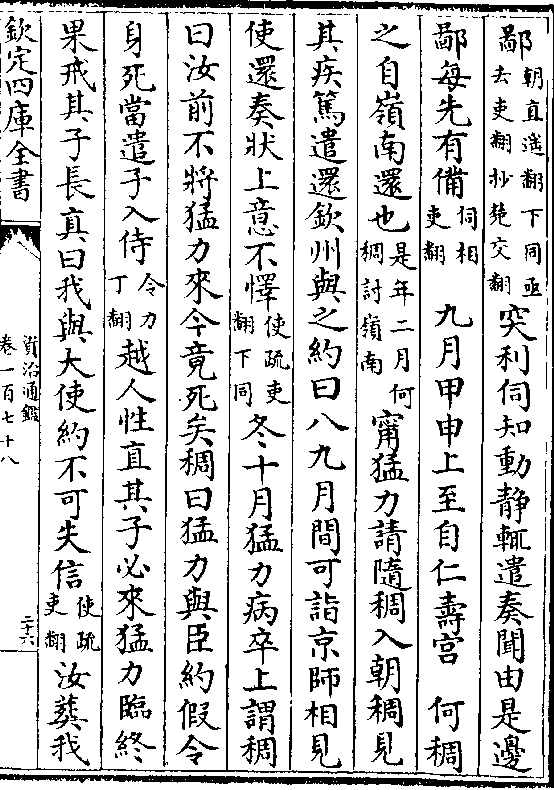 鄙朝直遥翻下同亟去吏翻抄楚交翻突利伺知動靜輒遣奏聞由是邊
鄙每先有備伺相吏翻 九月甲申上至自仁壽宮 何稠
之自嶺南還也是年二月何稠討嶺南甯猛力請隨稠入朝稠見
其疾篤遣還欽州與之約曰八九月間可詣京師相見
使還奏狀上意不懌使疏吏翻下同冬十月猛力病卒上謂稠
曰汝前不將猛力來今竟死矣稠曰猛力與臣約假令
身死當遣子入侍令力丁翻越人性直其子必來猛力臨終
果戒其子長真曰我與大使約不可失信使疏吏翻汝葬我
欽定四庫全書
資治通鑑
卷一百七十八
二十六